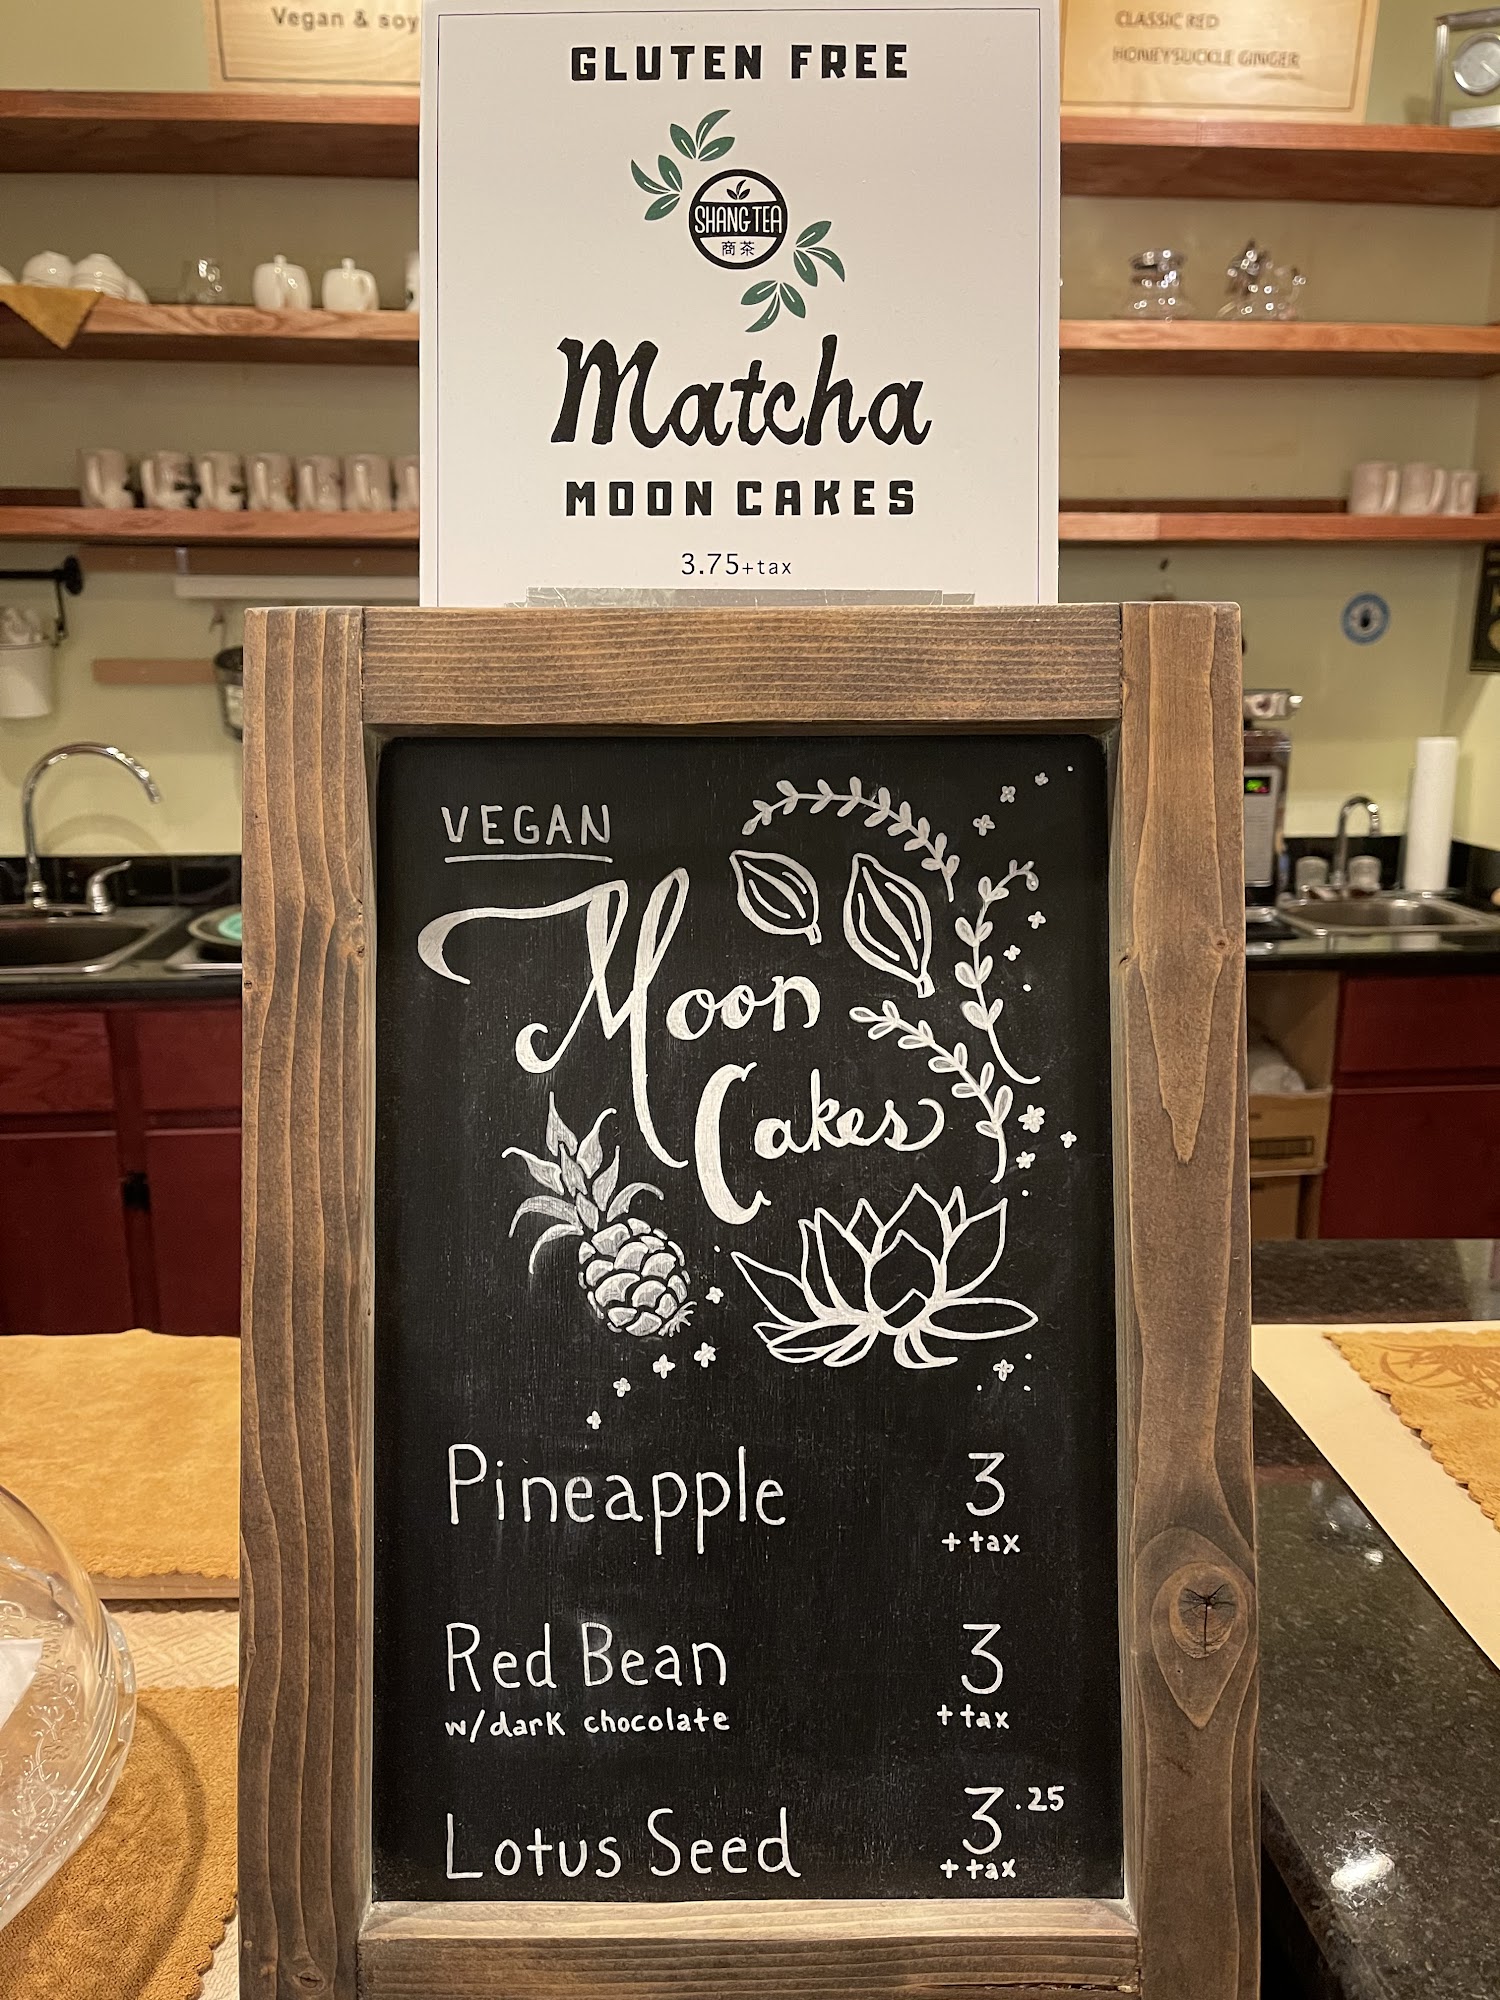 Vegan & soy
CLASSIC RED
HONEYSUCKLE GINGER
GLUTEN FREE
SHANG TEA
商茶
Matcha
MOON CAKES
3.75+tax
VEGAN
Moon
Cakes
Pineapple 3
+tax
Red Bean 3
w/dark chocolate +tax
Lotus Seed 3.25
+tax